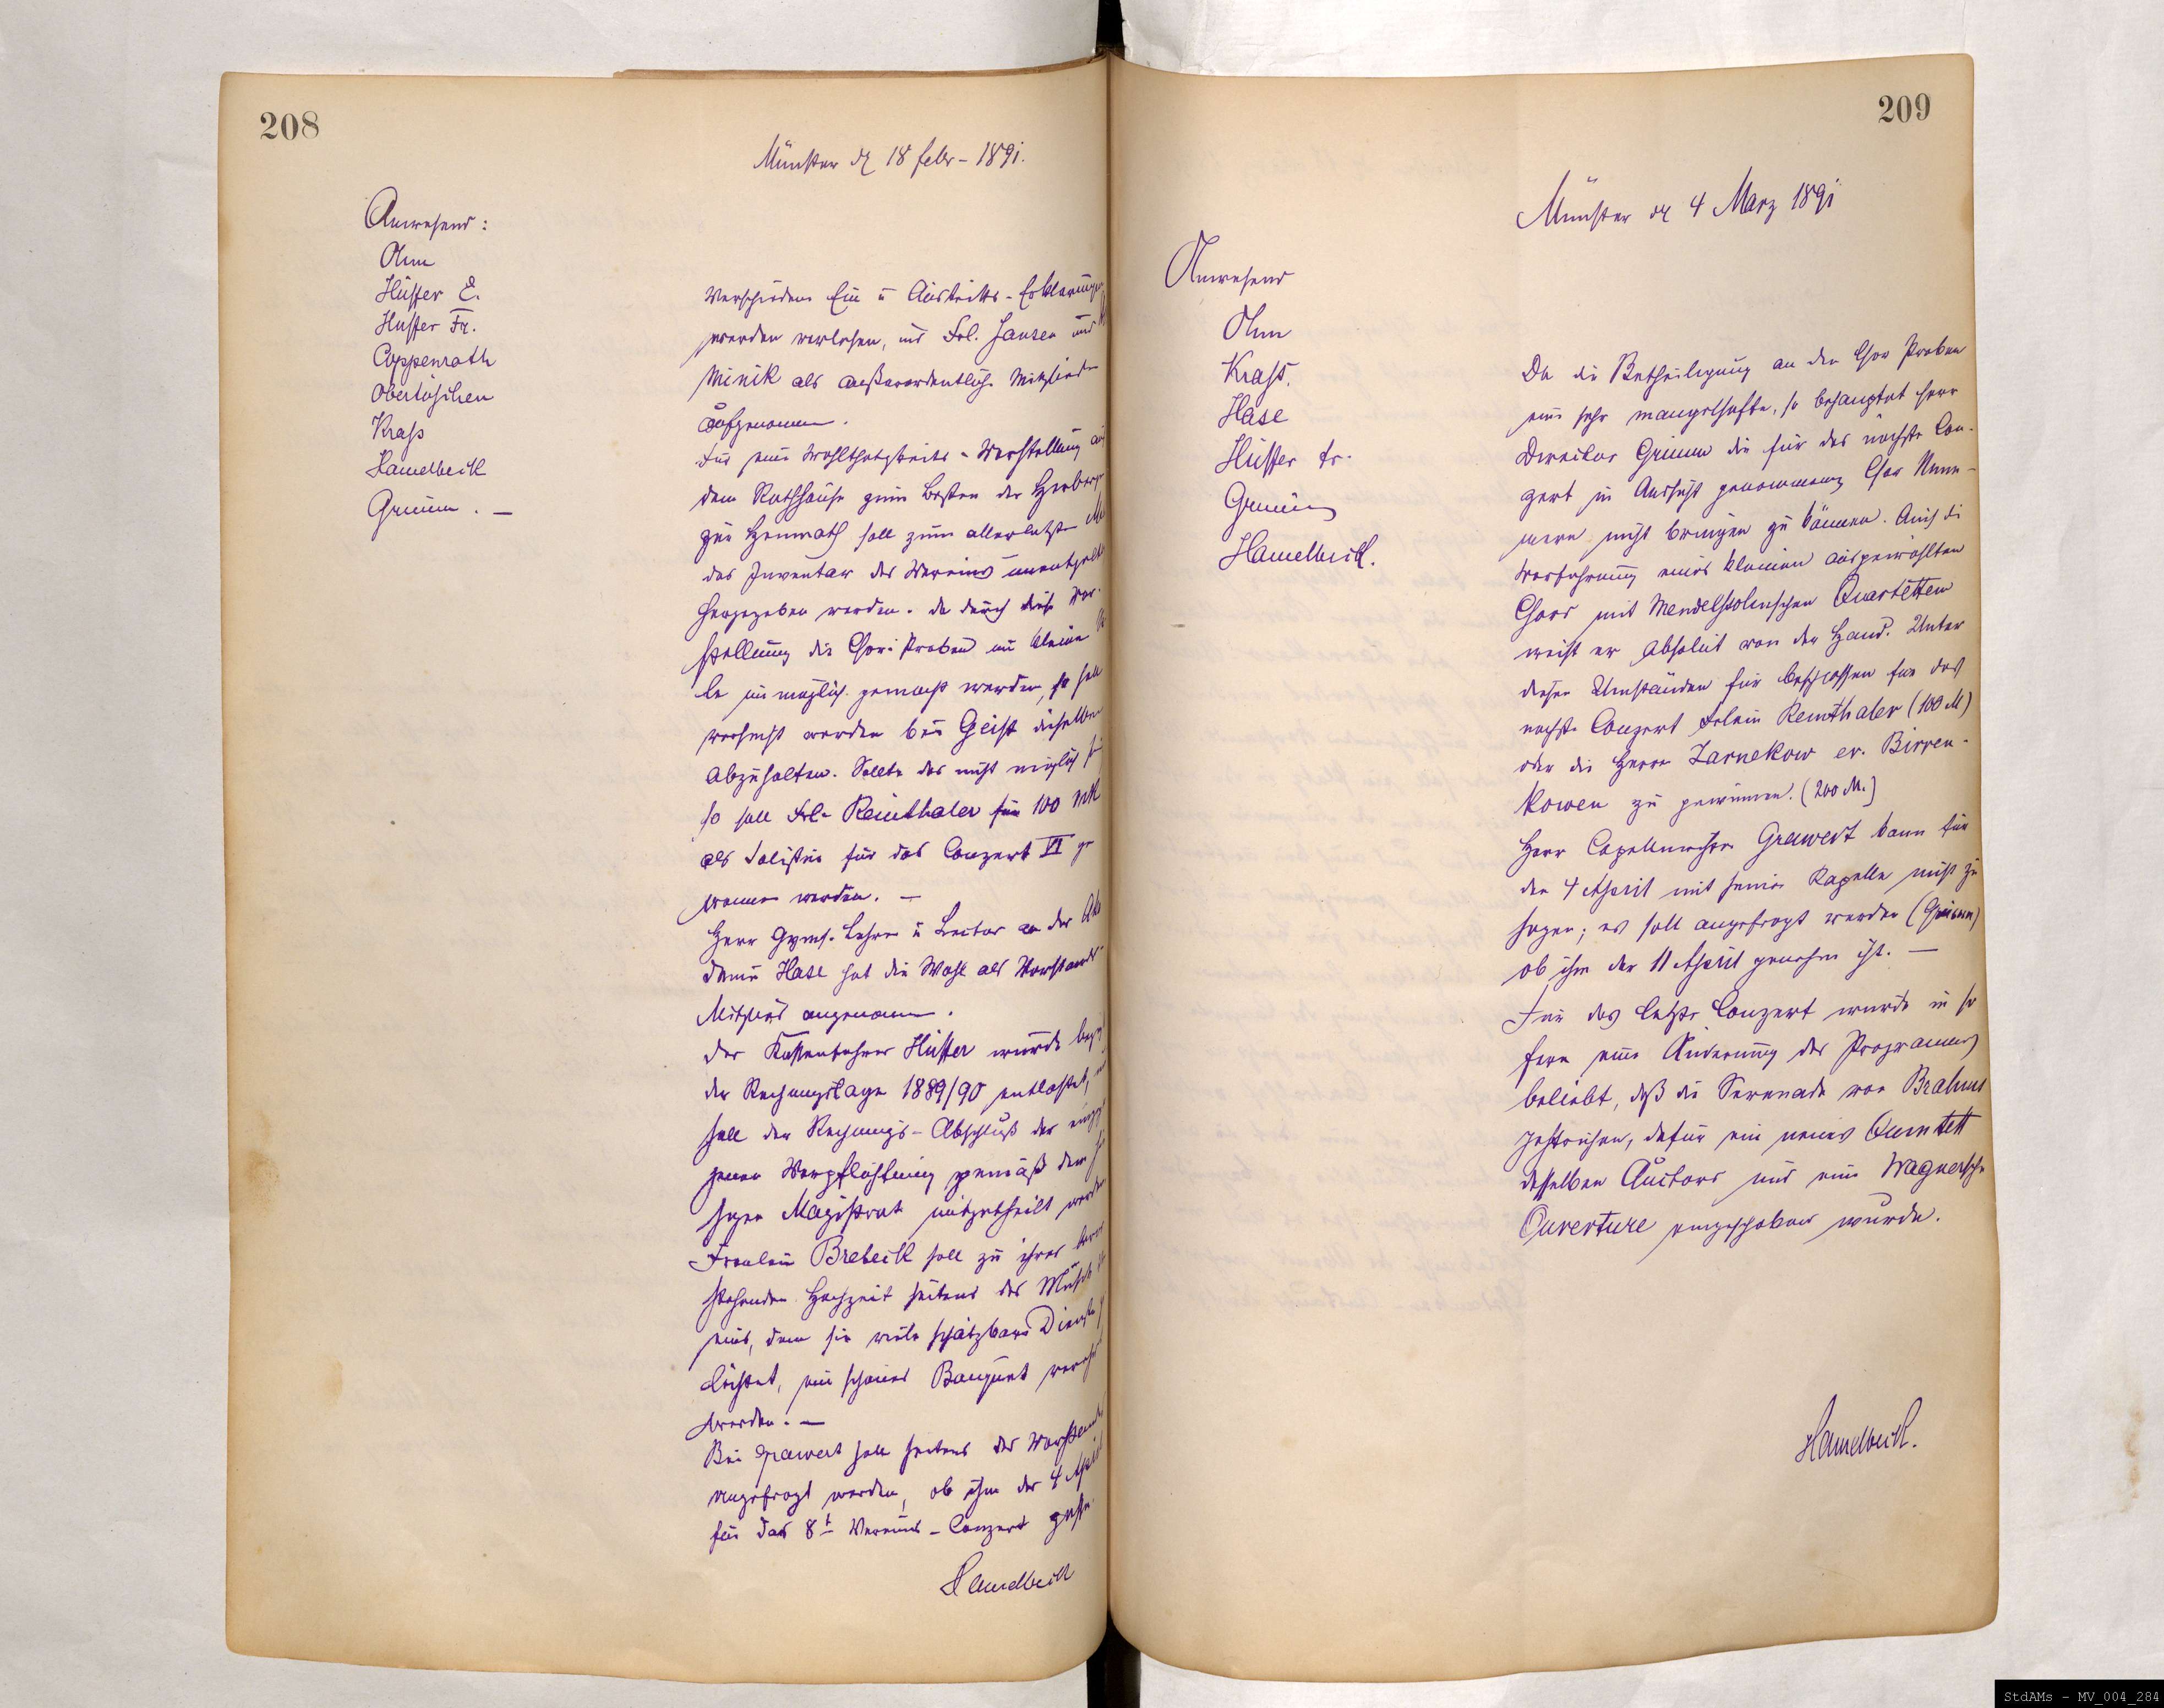 208
Münster d 18 Febr - 1891.
Anwesend:
Ohm
Hüffer E.
Hüffer Fr.
Coppenrath
Obertüschen
Krass
Hamelbeck
Grimm. —
Verschiedene Ein u Austritts-Erklärungen
werden verlesen, und Frl. Jansen und
Minik als außerordentliche Mitglieder
aufgenommen.
Für eine Wohlthätigkeits-Vorstellung auf
dem Rathhause zum Besten der
zur soll zum allerletzten Mal
das Inventar des Vereins unentgelt
hergegeben werden. Da durch diese Vor-
stellung die Chor-Proben im kleinen
le unmöglich gemacht werden, so soll
versucht werden bei Geist dieselben
abzuhalten. Sollte das nicht möglich sein
so soll Frl. Reinthaler für 100 Mk
als Solistin für das Conzert VI ge
wonnen werden. —
Herr Gymn. Lehrer u Lector an der Aka
demie Hase hat die Wahl als Vorstands
Mitglied angenommen.
Der Kassenführer Hüffer wurde bezgl
der Rechnungslage 1889/90 entlastet,
soll der Rechnungs-Abschluß der eingega
genen Verpflichtung gemäß dem hie
sigen Magistrat mitgetheilt werden
Fraulein Brebeck soll zu ihrer bevor
stehenden Hochzeit seitens des Musikver
eins, dem sie viele schätzbare Dienste ge
leistet, ein schönes Bouquet verehrt
werden. —
Bei Grawert soll seitens des Vorstands
angefragt werden, ob ihm der 4 April
für das 8t Vereins-Conzert passe.
Hamelbeck
209
Münster d 4 März 1891
Anwesend
Ohm
Krass.
Hase
Hüffer Fr.
Grimm
Hamelbeck.
Da die Betheiligung an den Chor Proben
eine sehr mangelhafte, so behauptet Herr
Director Grimm die für das nächste Con-
zert in Aussicht genommenen Chor Num-
mern nicht bringen zu können. Auch die
Vorführung eines kleinen ausgewählten
Chors mit Mendelssohnschen Quartetten
weist er absolut von der Hand. Unter
diesen Umständen für beschlossen für das
nächste Conzert Frlein Reinthaler (100 M)
oder die Herrn Zarnekow ev. Birren-
koven zu gewinnen. (200 M.)
Herr Capellmeister Grawert kann für
den 4 April mit seiner Kapelle nicht zu
sagen; es soll angefragt werden (Grimm)
ob ihm der 11 April genehm ist. —
Für das letzte Conzert wurde in so
fern eine Änderung des Programms
beliebt, daß die Serenade von Brahms
gestrichen, dafür ein neues Quintett
desselben Autors und eine Wagnersche
Ouverture eingeschoben wurde.
Hamelbeck.
StdAMs - MV_004_284